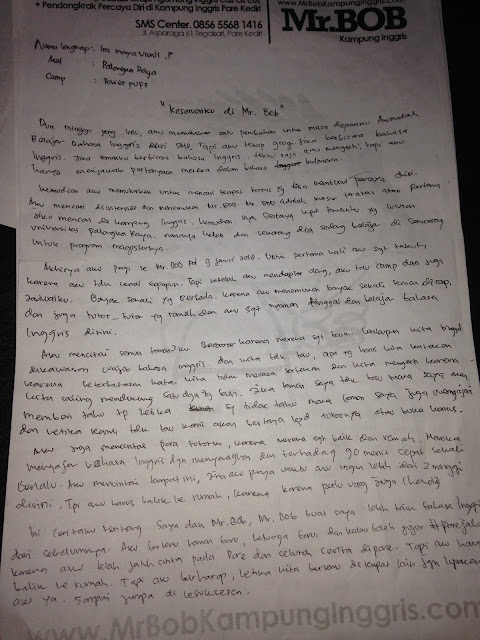 + Pendongkrak Percaya Diri di Kampung Inggris Pare Kediri
SMS Center. 0856 5568 1416
Jl. Asparaga 61 Tegalsari, Pare Kediri
www.MrBobKampungInggris.com
Mr.BOB
Kampung Inggris
Nama lengkap : Ira maya .P
Asal : Palangka Raya
Camp : Power puff
"Kesanku di Mr. Bob"
Dua minggu yang lalu, aku memutuskan satu perubahan untuk masa depanku. Aku sudah
Belajar bahasa Inggris dari SMP. Tapi aku tetap gugup jika berbicara bahasa
Inggris. Jika temanku berbicara bahasa Inggris, tentu saja aku mengerti, tapi aku
hanya menjawab pertanyaan mereka dalam bahasa Indonesia.
Kemudian aku memutuskan untuk mencari tempat kursus yg bisa membuat percaya diri.
Aku mencari di internet dan menemukan Mr. BOB. Mr BOB adalah kursus teratas atau pertama
saat mencari di kampung Inggris. kemudian saya bertanya kpd temanku yg lulusan
universitas palangka Raya. namanya dan sekarang dia sedang belajar di Semarang
untuk program magisternya.
Akhirnya aku pergi ke Mr. BOB tgl 9 januari 2016. Untuk pertama kali aku sgt takut
karena aku tdk kenal siapapun. Tapi setelah aku mendaftar ulang, aku tau camp dan juga
jadwalku. Banyak sekali yg berbeda. karena aku menemukan banyak sekali teman di camp,
dan juga tutor-tutor yg ramah, dan aku sgt nyaman tinggal dan belajar bahasa
Inggris disini.
Aku mencintai semua teman2ku karena mereka sgt baik. walaupun kita tinggal
dikawasan wajib bahasa inggris dan kita tdk tau, apa yg harus kita katakan
karena keterbatasan kata. Kita tidak merasa tertekan dan kita mengerti karena
kita saling mendukung satu dgn yg lain. Jika teman saya tdk tau maka saya akan
memberi tahu tp ketika sy tidak tahu maka teman saya juga mengajari
dan ketika kami tdk tau kami akan bertanya kpd tutornya atau buka kamus.
Aku juga mencintai para tutorku, karena mereka sgt baik dan ramah. Mereka
mengajar bahasa Inggris dgn menyenangkan dan terkadang 90 menit cepat sekali
Berlalu. Aku mencintai tempat ini, Jika aku punya waktu aku ingin lebih dari 2 minggu
disini, Tpi aku harus balik ke rumah, karena karena perlu uang juga (hehe)
Ini ceritaku tentang saya dan Mr. Bob, Mr. Bob buat saya lebih baik bahasa Inggris
dari sebelumnya. Aku bertemu teman baru, keluarga baru, dan kalau boleh jujur
karena aku telah jatuh cinta pada Pare dan seluruh cerita di pare. Tapi aku harus
balik ke rumah. Tapi aku berharap, ketika kita bertemu di tempat lain jgn lupakan
aku ya. Sampai jumpa di kesuksesan.
www.MrBobKampungInggris.com